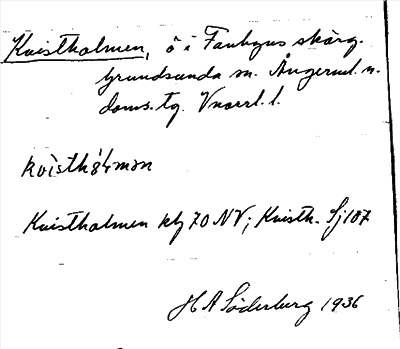 Kvistholmen, ö i Fanbyns skärg.
Grundsunda sn. Ångerml. n.
doms. tg. Vnorrl. l.
kvisthålmən
Kvistholmen kbl 70 NV; Kvisth. Sj 107
H A Söderberg 1936